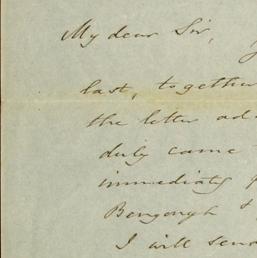 My dear Sir,
last, together
the letter ad
duly came
immediately
Bengough &
I will send